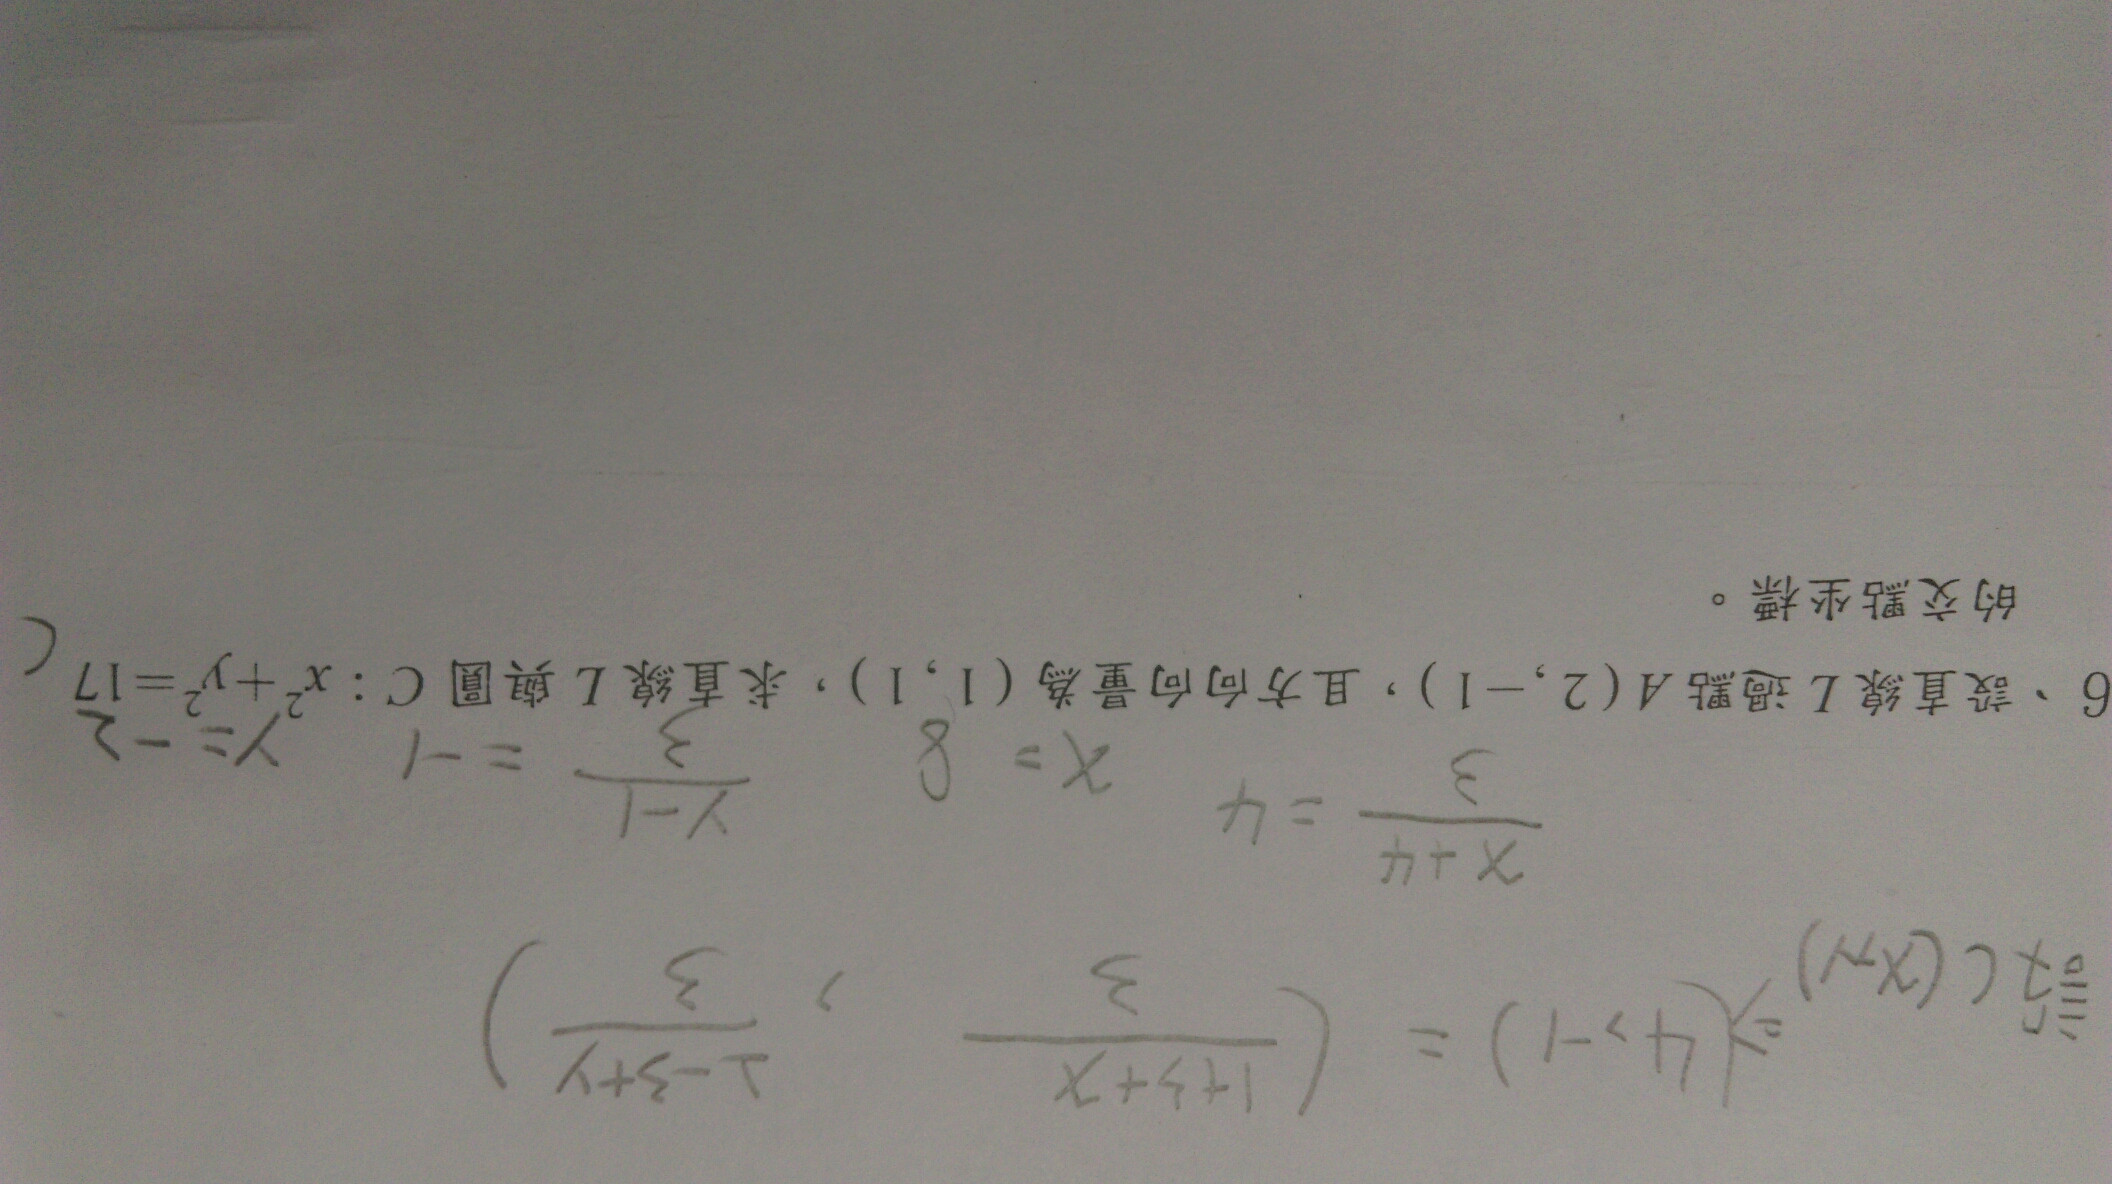 設C(x,y) ⇒ (4,-1) = (\frac{1+3+x}{3}, \frac{2-3+y}{3})
\frac{x+4}{3} = 4 x = 8 \frac{y-1}{3} = -1 y = -2
6、設直線L過點A(2,-1),且方向向量為(1,1),求直線L與圓C:x²+y²=17
的交點坐標。